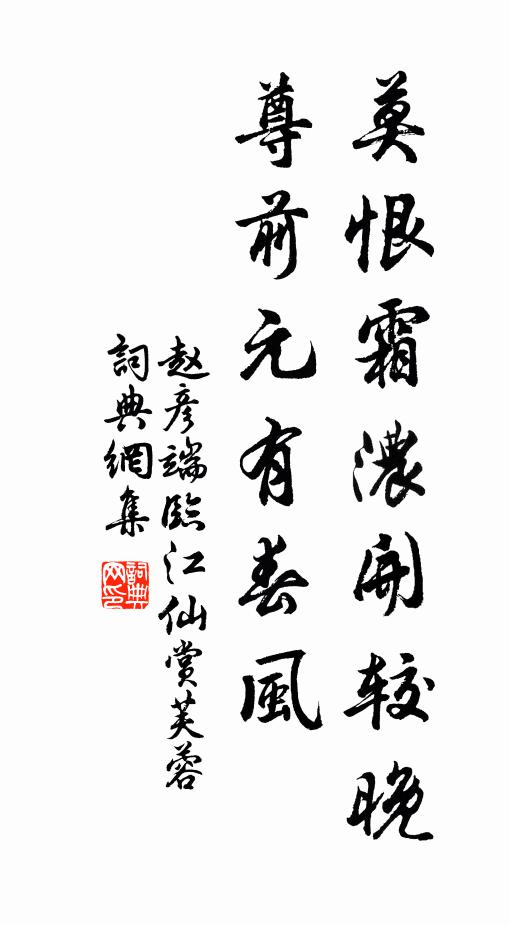 莫恨霜濃開较晚
尊前元有春風
赵彦端臨江仙赏芙蓉
詞典網集
詞典网印